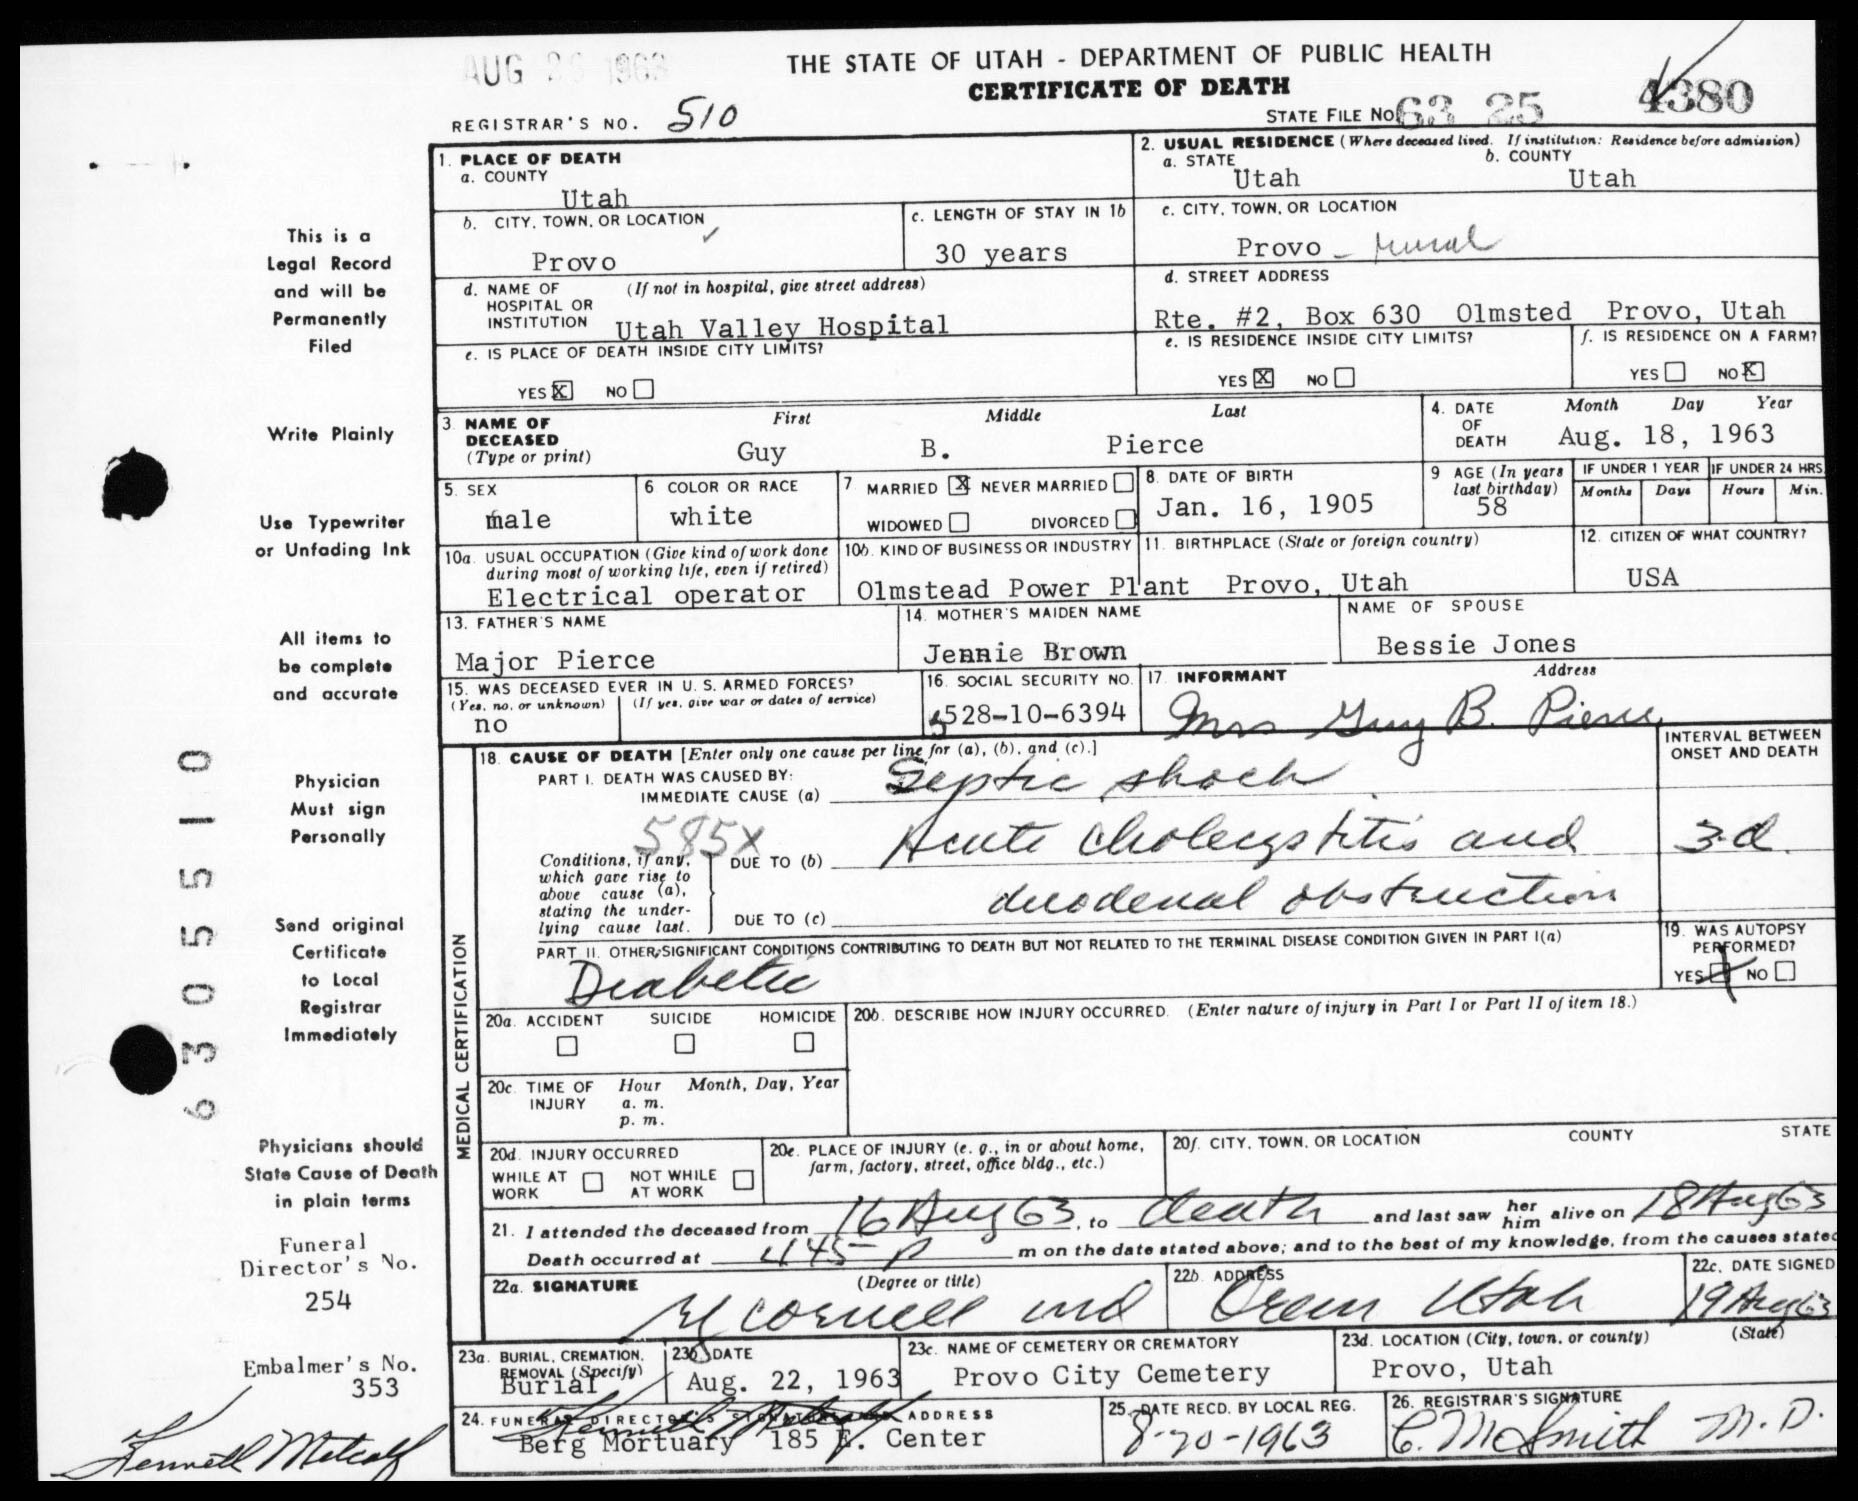 AUG 26 1963
THE STATE OF UTAH - DEPARTMENT OF PUBLIC HEALTH
CERTIFICATE OF DEATH
REGISTRAR'S NO. 510
STATE FILE NO 63 25 4380
This is a
Legal Record
and will be
Permanently
Filed
Write Plainly
Use Typewriter
or Unfading Ink
All items to
be complete
and accurate
Physician
Must sign
Personally
Send original
Certificate
to Local
Registrar
Immediately
Physicians should
State Cause of Death
in plain terms
Funeral
Director's No.
254
Embalmer's No.
353
Kenneth Metcalf
6305510
1. PLACE OF DEATH
a. COUNTY
Utah
2. USUAL RESIDENCE (Where deceased lived. If institution: Residence before admission)
a. STATE b. COUNTY
Utah Utah
b. CITY, TOWN, OR LOCATION
Provo
c. LENGTH OF STAY IN 1b
30 years
c. CITY, TOWN, OR LOCATION
Provo - rural
d. NAME OF (If not in hospital, give street address)
HOSPITAL OR
INSTITUTION Utah Valley Hospital
d. STREET ADDRESS
Rte. #2, Box 630 Olmsted Provo, Utah
e. IS PLACE OF DEATH INSIDE CITY LIMITS?
YES X NO
e. IS RESIDENCE INSIDE CITY LIMITS?
YES X NO
f. IS RESIDENCE ON A FARM?
YES NO X
3. NAME OF DECEASED (Type or print)
First Middle Last
Guy B. Pierce
4. DATE OF DEATH
Month Day Year
Aug. 18, 1963
5. SEX
male
6 COLOR OR RACE
white
7 MARRIED X NEVER MARRIED
WIDOWED DIVORCED
8. DATE OF BIRTH
Jan. 16, 1905
9 AGE (In years
last birthday)
58
IF UNDER 1 YEAR
Months Days
IF UNDER 24 HRS.
Hours Min.
10a. USUAL OCCUPATION (Give kind of work done
during most of working life, even if retired)
Electrical operator
10b. KIND OF BUSINESS OR INDUSTRY
Olmstead Power Plant
11. BIRTHPLACE (State or foreign country)
Provo, Utah
12. CITIZEN OF WHAT COUNTRY?
USA
13. FATHER'S NAME
Major Pierce
14. MOTHER'S MAIDEN NAME
Jennie Brown
NAME OF SPOUSE
Bessie Jones
15. WAS DECEASED EVER IN U. S. ARMED FORCES?
(Yes, no, or unknown) (If yes, give war or dates of service)
no
16. SOCIAL SECURITY NO.
528-10-6394
17. INFORMANT Address
Mrs Guy B. Pierce
MEDICAL CERTIFICATION
18. CAUSE OF DEATH [Enter only one cause per line for (a), (b), and (c).]
INTERVAL BETWEEN
ONSET AND DEATH
PART I. DEATH WAS CAUSED BY:
IMMEDIATE CAUSE (a) Septic shock
585X
Conditions, if any,
which gave rise to
above cause (a),
stating the under-
lying cause last.
DUE TO (b) Acute cholecystitis and 3-d.
DUE TO (c) duodenal obstruction
PART II. OTHER SIGNIFICANT CONDITIONS CONTRIBUTING TO DEATH BUT NOT RELATED TO THE TERMINAL DISEASE CONDITION GIVEN IN PART I(a)
Diabetic
19. WAS AUTOPSY
PERFORMED?
YES NO
20a. ACCIDENT SUICIDE HOMICIDE
20b. DESCRIBE HOW INJURY OCCURRED. (Enter nature of injury in Part I or Part II of item 18.)
20c. TIME OF INJURY
Hour Month, Day, Year
a. m.
p. m.
20d. INJURY OCCURRED
WHILE AT WORK NOT WHILE AT WORK
20e. PLACE OF INJURY (e. g., in or about home,
farm, factory, street, office bldg., etc.)
20f. CITY, TOWN, OR LOCATION COUNTY STATE
21. I attended the deceased from 16 Aug 63, to death and last saw her him alive on 18 Aug 63
Death occurred at 445 P m on the date stated above; and to the best of my knowledge, from the causes stated
22a. SIGNATURE (Degree or title)
Cornell md
22b. ADDRESS
Orem Utah
22c. DATE SIGNED
19 Aug 63
23a. BURIAL, CREMATION,
REMOVAL (Specify)
Burial
23b. DATE
Aug. 22, 1963
23c. NAME OF CEMETERY OR CREMATORY
Provo City Cemetery
23d. LOCATION (City, town, or county) (State)
Provo, Utah
24. FUNERAL DIRECTOR'S SIGNATURE AND ADDRESS
Kenneth Metcalf
Berg Mortuary 185 E. Center
25. DATE RECD. BY LOCAL REG.
8-20-1963
26. REGISTRAR'S SIGNATURE
C. M Smith M.D.